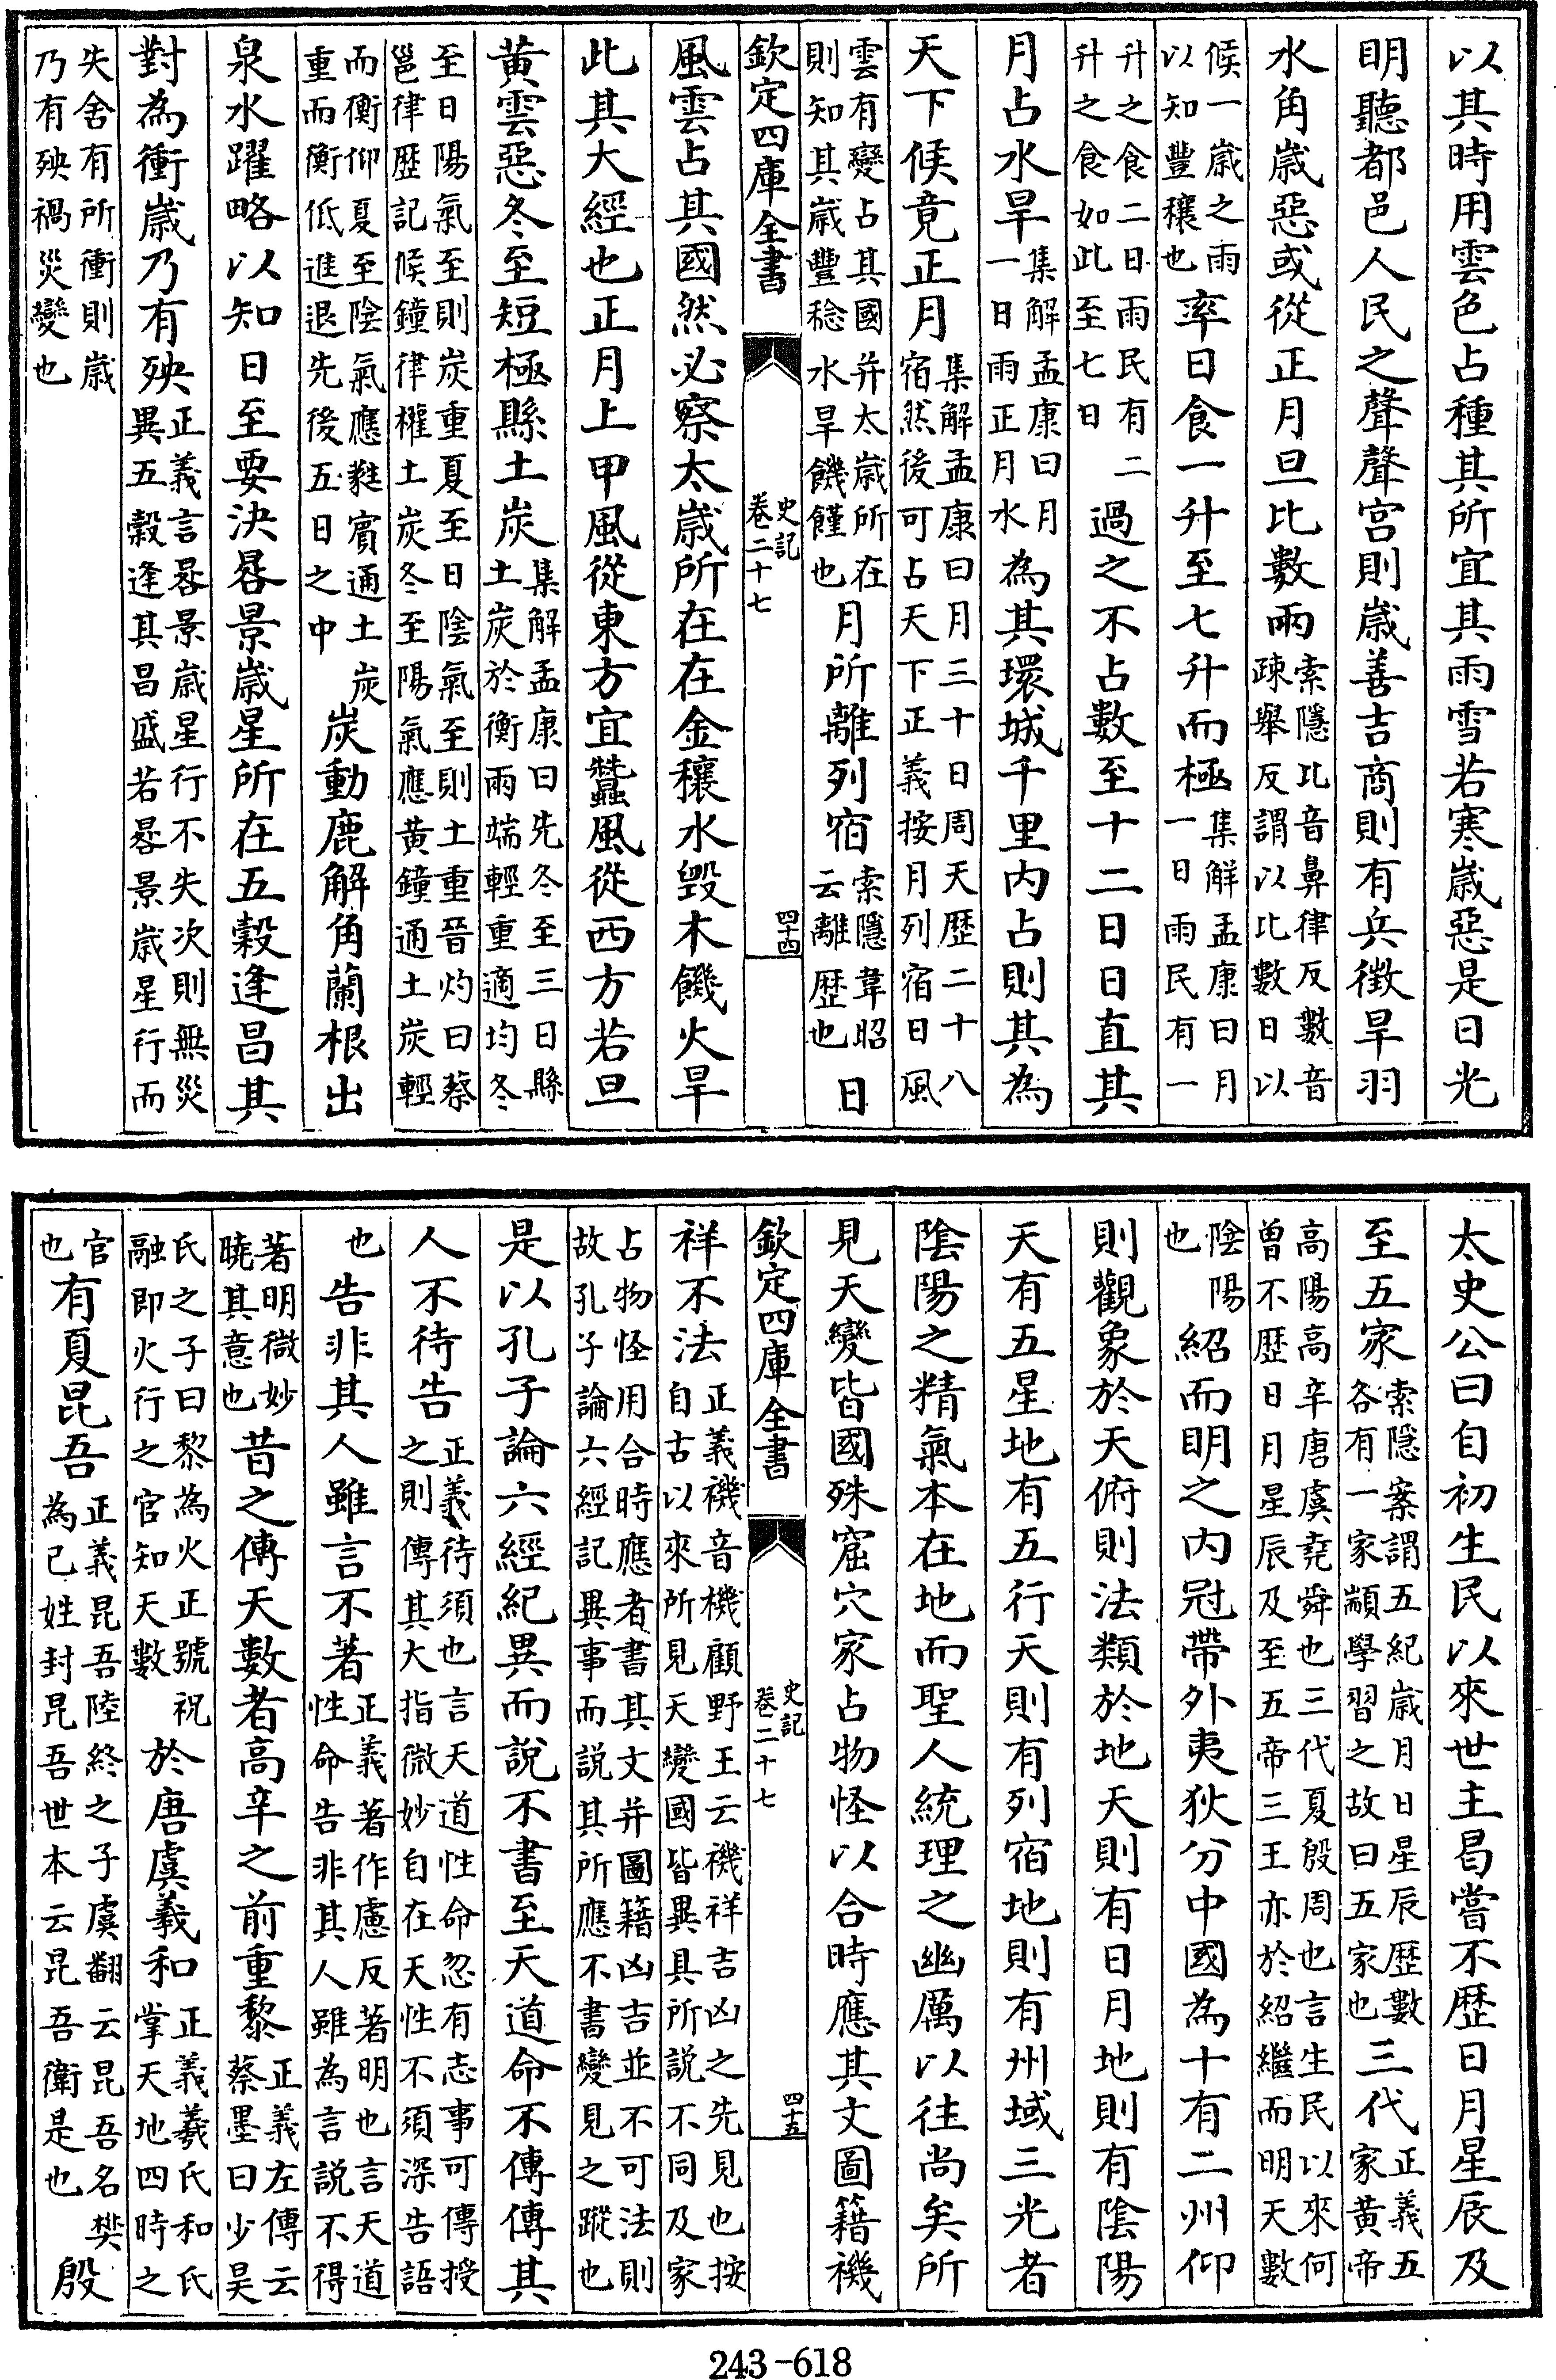 以其時用雲色占種其所宜其雨雪若寒歲惡是日光
明聽都邑人民之聲聲宮則歲善吉商則有兵徵旱羽
水角歲惡或從正月旦比數雨索隱比音鼻律反數音疎舉反謂以比數日以
候一歲之雨以知豐穰也率日食一升至七升而極集解孟康曰月一日雨民有一
升之食二日雨民有二升之食如此至七日過之不占數至十二日日直其
月占水旱集解孟康曰月一日雨正月水為其環城千里內占則其為
天下候竟正月集解孟康曰月三十日周天歷二十八宿然後可占天下正義按月列宿日風
雲有變占其國并太歲所在則知其歲豐稔水旱饑饉也月所離列宿索隱韋昭云離歷也日
欽定四庫全書
史記
卷二十七
四十四
風雲占其國然必察太歲所在在金穰水毀木饑火旱
此其大經也正月上甲風從東方宜蠶風從西方若旦
黃雲惡冬至短極縣土炭集解孟康曰先冬至三日縣土炭於衡兩端輕重適均冬
至日陽氣至則炭重夏至日陰氣至則土重晉灼曰蔡邕律歷記候鐘律權土炭冬至陽氣應黃鐘通土炭輕
而衡仰夏至陰氣應蕤賓通土炭重而衡低進退先後五日之中炭動鹿解角蘭根出
泉水躍略以知日至要決晷景歲星所在五穀逢昌其
對為衝歲乃有殃正義言晷景歲星行不失次則無災異五穀逢其昌盛若晷景歲星行而
失舍有所衝則歲乃有殃禍災變也
太史公曰自初生民以來世主曷嘗不歷日月星辰及
至五家索隱案謂五紀歲月日星辰歷數各有一家顓學習之故曰五家也三代正義五家黃帝
高陽高辛唐虞堯舜也三代夏殷周也言生民以來何曾不歷日月星辰及至五帝三王亦於紹繼而明天數
陰陽也紹而明之內冠帶外夷狄分中國為十有二州仰
則觀象於天俯則法類於地天則有日月地則有陰陽
天有五星地有五行天則有列宿地則有州域三光者
陰陽之精氣本在地而聖人統理之幽厲以往尚矣所
見天變皆國殊窟穴家占物怪以合時應其文圖籍禨
欽定四庫全書
史記
卷二十七
四十五
祥不法正義禨音機顧野王云禨祥吉凶之先見也按自古以來所見天變國皆異具所說不同及家
占物怪用合時應者書其文并圖籍凶吉並不可法則故孔子論六經記異事而說其所應不書變見之蹤也
是以孔子論六經紀異而說不書至天道命不傳傳其
人不待告正義待須也言天道性命忽有志事可傳授之則傳其大指微妙自在天性不須深告語
也告非其人雖言不著正義著作慮反著明也言天道性命告非其人雖為言說不得
著明微妙曉其意也昔之傳天數者高辛之前重黎正義左傳云蔡墨曰少昊
氏之子曰黎為火正號祝融即火行之官知天數於唐虞羲和正義羲氏和氏掌天地四時之
官也有夏昆吾正義昆吾陸終之子虞翻云昆吾名樊為己姓封昆吾世本云昆吾衛是也殷
243-618